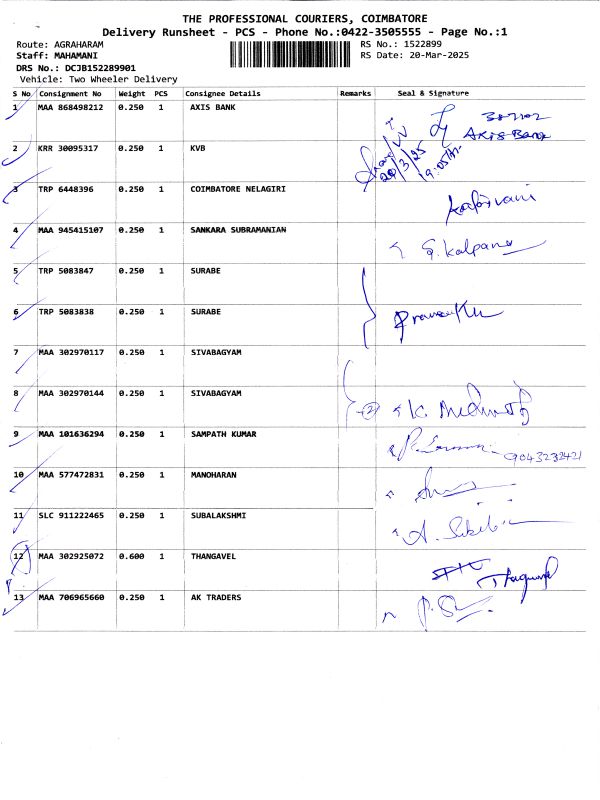 THE PROFESSIONAL COURIERS, COIMBATORE
Delivery Runsheet - PCS - Phone No.:0422-3505555 - Page No.:1
Route: AGRAHARAM
RS No.: 1522899
Staff: MAHAMANI
RS Date: 20-Mar-2025
DRS No.: DCJB152289901
Vehicle: Two Wheeler Delivery
S No Consignment No Weight PCS Consignee Details Remarks Seal & Signature
1 MAA 868498212 0.250 1 AXIS BANK
AXIS Bank
2 KRR 30095317 0.250 1 KVB
20/3/25
3 TRP 6448396 0.250 1 COIMBATORE NELAGIRI
4 MAA 945415107 0.250 1 SANKARA SUBRAMANIAN
G. Kalpana
5 TRP 5083847 0.250 1 SURABE
6 TRP 5083838 0.250 1 SURABE
7 MAA 302970117 0.250 1 SIVABAGYAM
8 MAA 302970144 0.250 1 SIVABAGYAM
9 MAA 101636294 0.250 1 SAMPATH KUMAR
9043232421
10 MAA 577472831 0.250 1 MANOHARAN
11 SLC 911222465 0.250 1 SUBALAKSHMI
12 MAA 302925072 0.600 1 THANGAVEL
13 MAA 706965660 0.250 1 AK TRADERS